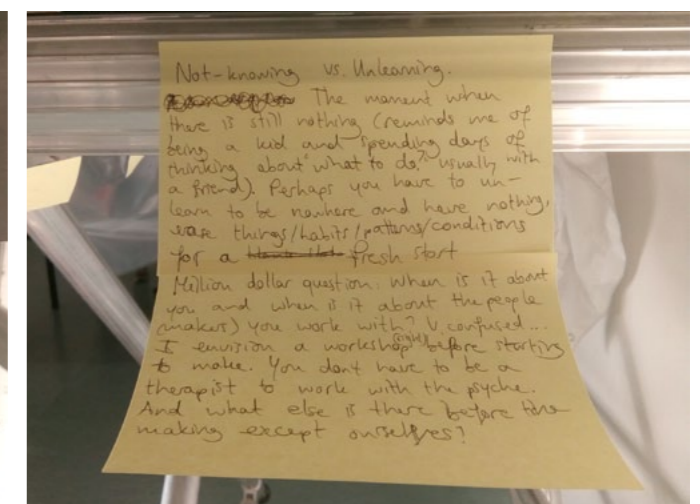 Not-knowing vs. Unlearning.
The moment when
there is still nothing (reminds me of
being a kid and spending days of
thinking about "what to do?" usually with
a friend). Perhaps you have to un-
learn to be nowhere and have nothing,
erase things/habits/patterns/conditions
for a fresh start
Million dollar question: When is it about
you and when is it about the people
(makers) you work with? V. confused...
I envision a workshop (right) before starting
to make. You dont have to be a
therapist to work with the psyche.
And what else is there before the
making except ourselves?